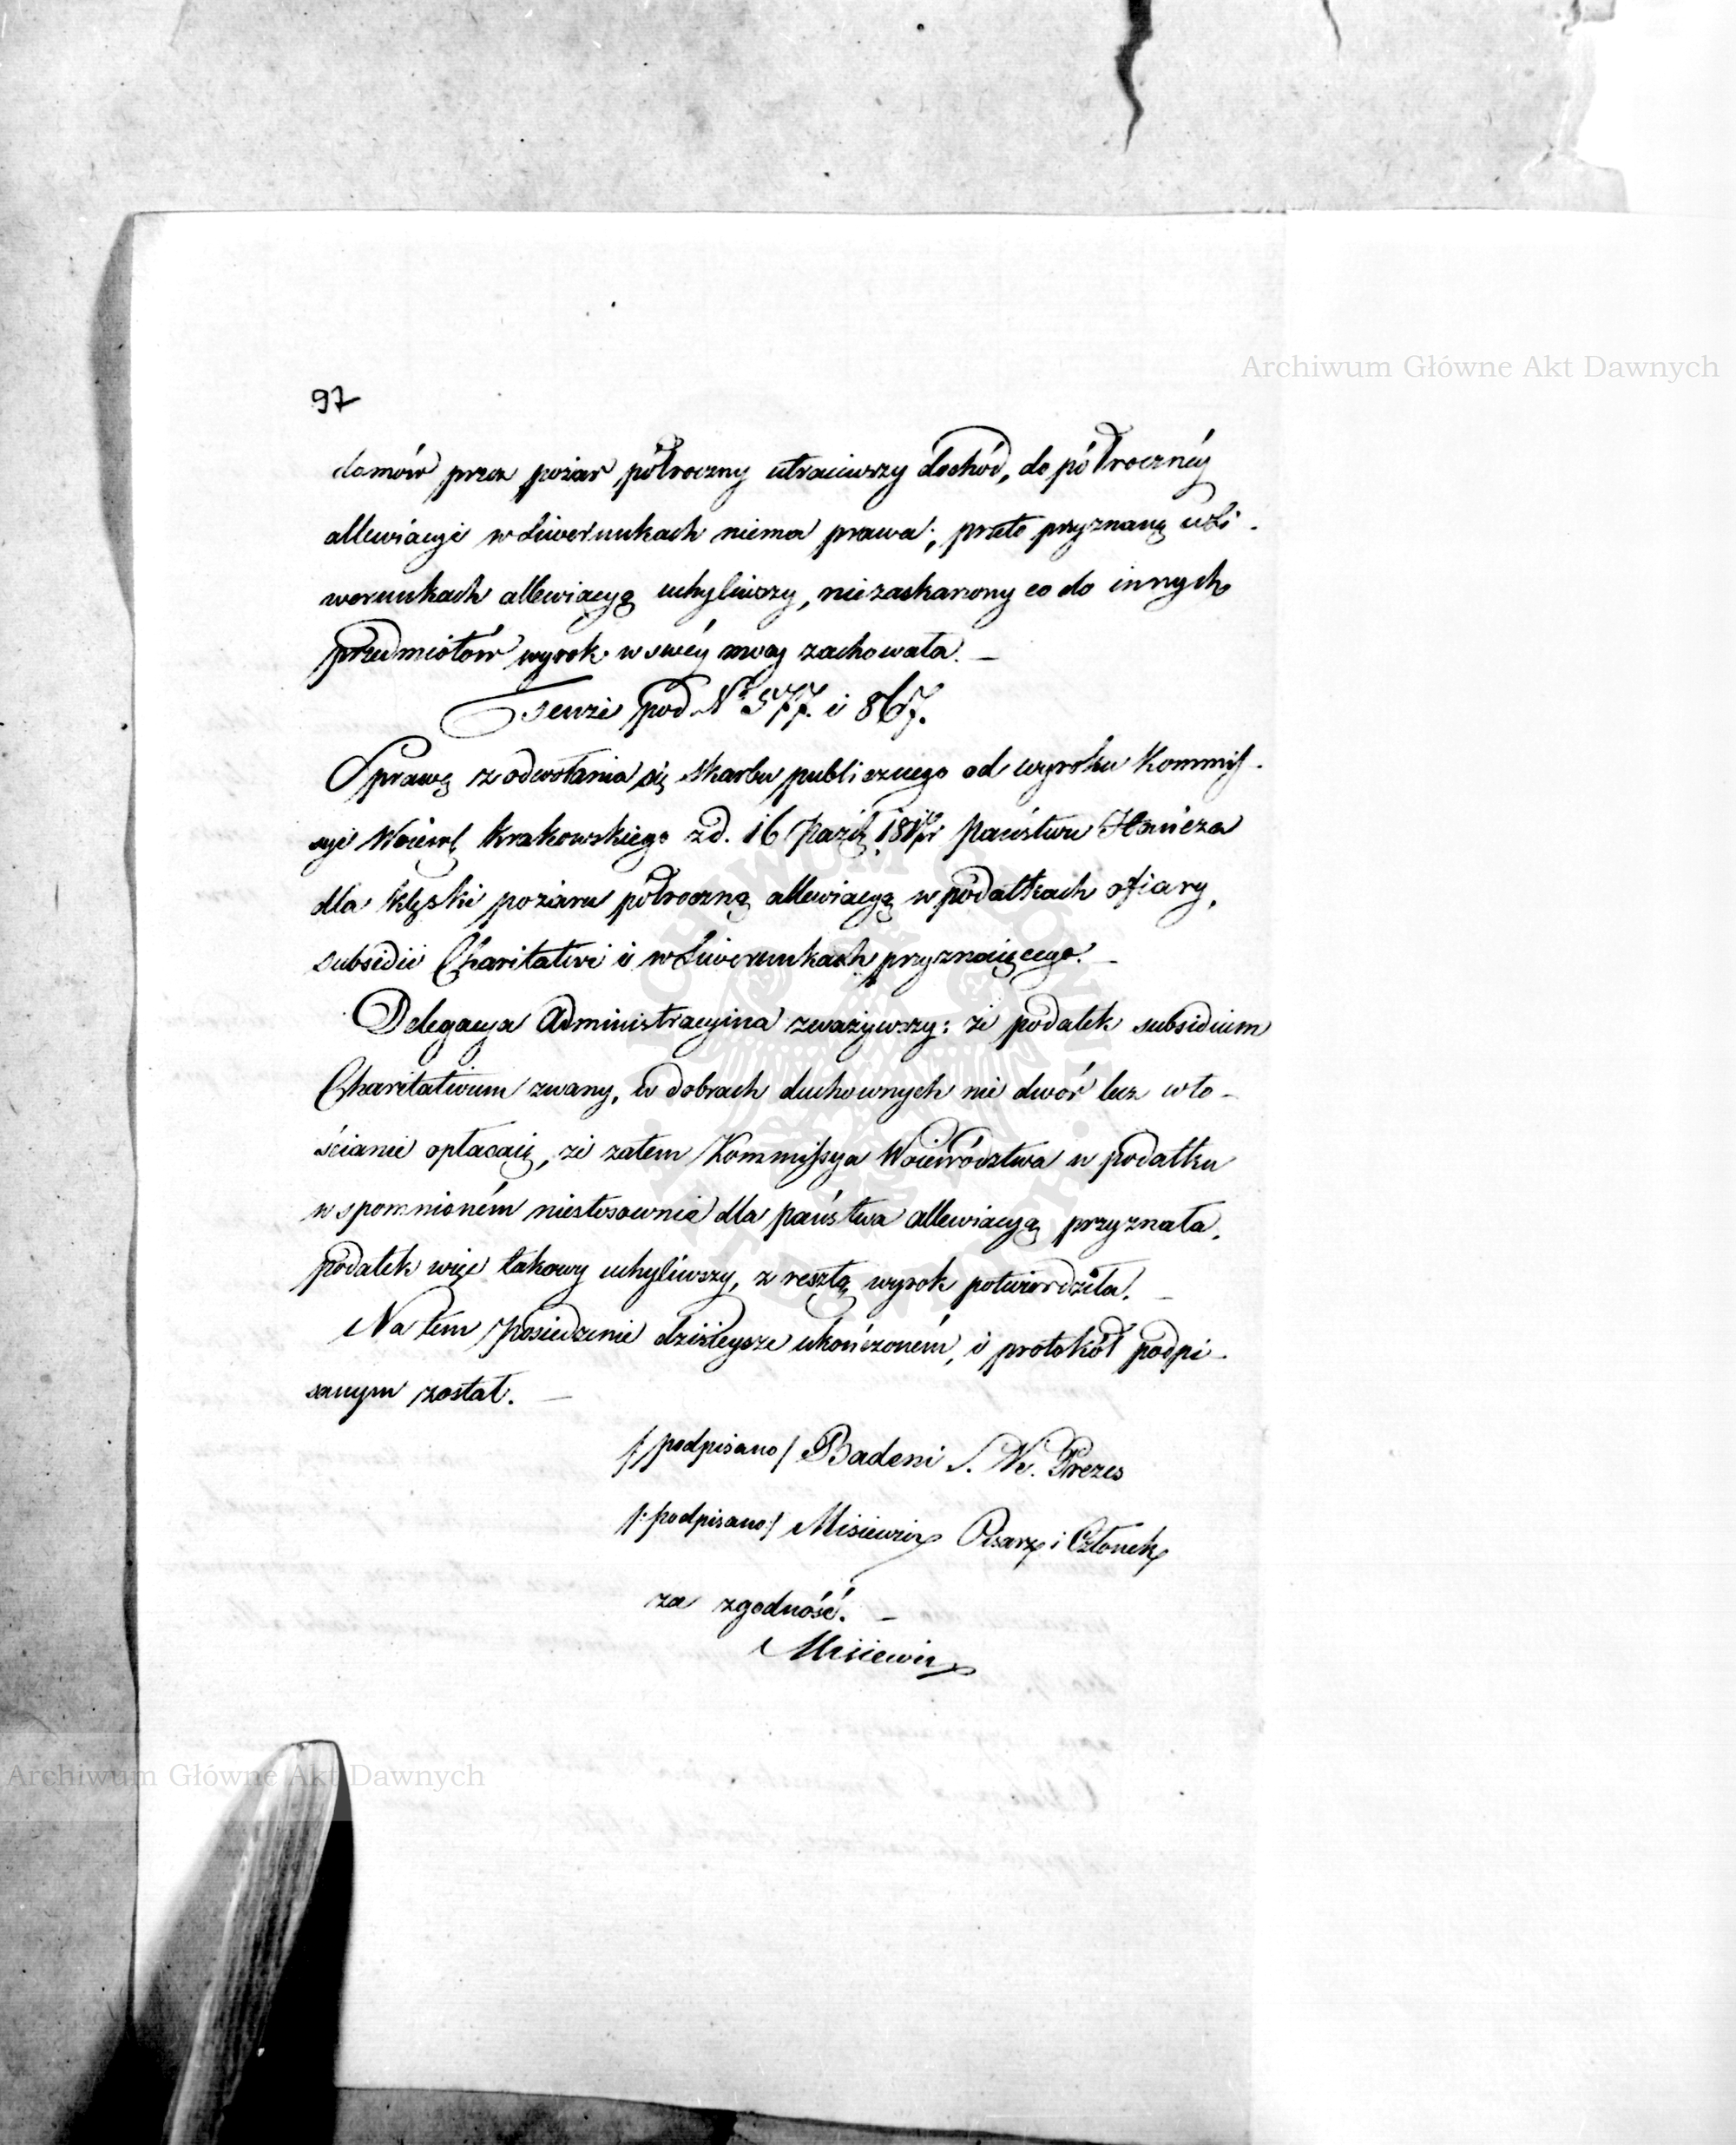 Archiwum Główne Akt Dawnych
97
domów przez pożar półroczny utraciwszy dochód, do półrocznéy
allewiacyi w Liwerunkach niema prawa; przeto przyznaną w Li-
werunkach allewiacyą uchyliwszy, niezaskarzony co do innych
przedmiotów wyrok w swéy mocy zachowała. —
Tenże pod Nº 577. i 867.
Sprawę z odwołania się Skarbu publicznego od wyroku Kommis-
syi Krakowskiego z d. 16 Paźdź. państwu Hańcza
dla klęski pożaru półroczną allewiacyą w podatkach ofiary,
subsidii Charitativi i w Liwerunkach przyznaiącego. —
Delegacya Administracyina zważywszy: że podatek subsidium
Charitativum zwany, w dobrach duchownych nie dwór lecz wło-
ścianie opłacaią, że zatem Kommissya Woiewództwa w podatku
wspomnioném niestosownie dla państwa allewiacyą przyznała,
podatek więc takowy uchyliwszy, z resztą wyrok potwierdziła. —
Na tém posiedzenie dzisieysze ukończoném, i protokół podpi-
sanym został. —
/:podpisano/ Badeni S. W. Prezes
/:podpisano:/ Misiewicz Pisarz i Członek
za zgodność. —
Misiewicz
Archiwum Główne Akt Dawnych